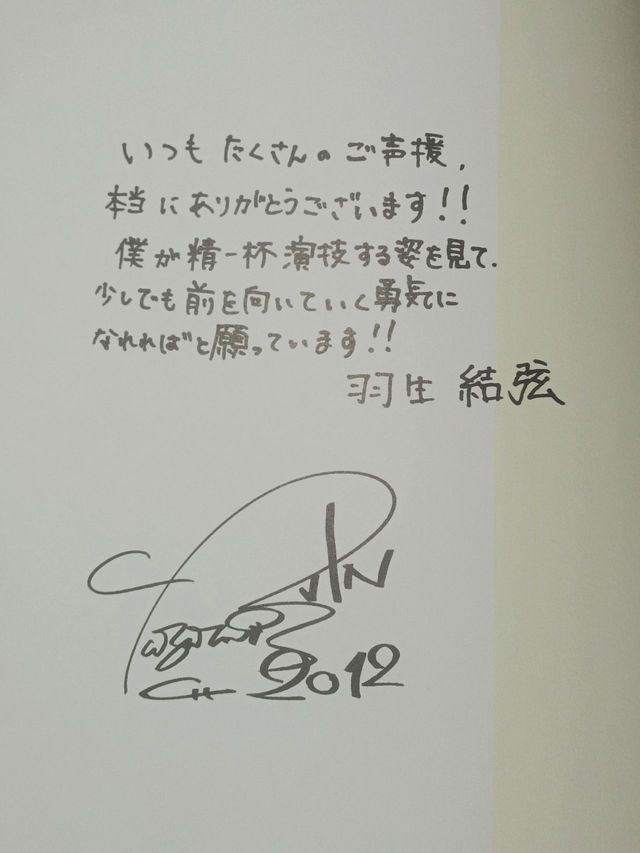 いつも たくさんの ご声援,
本当にありがとうございます!!
僕が精一杯演技する姿を見て、
少しでも前を向いていく勇気に
なれればと願っています!!
羽生 結弦
2012